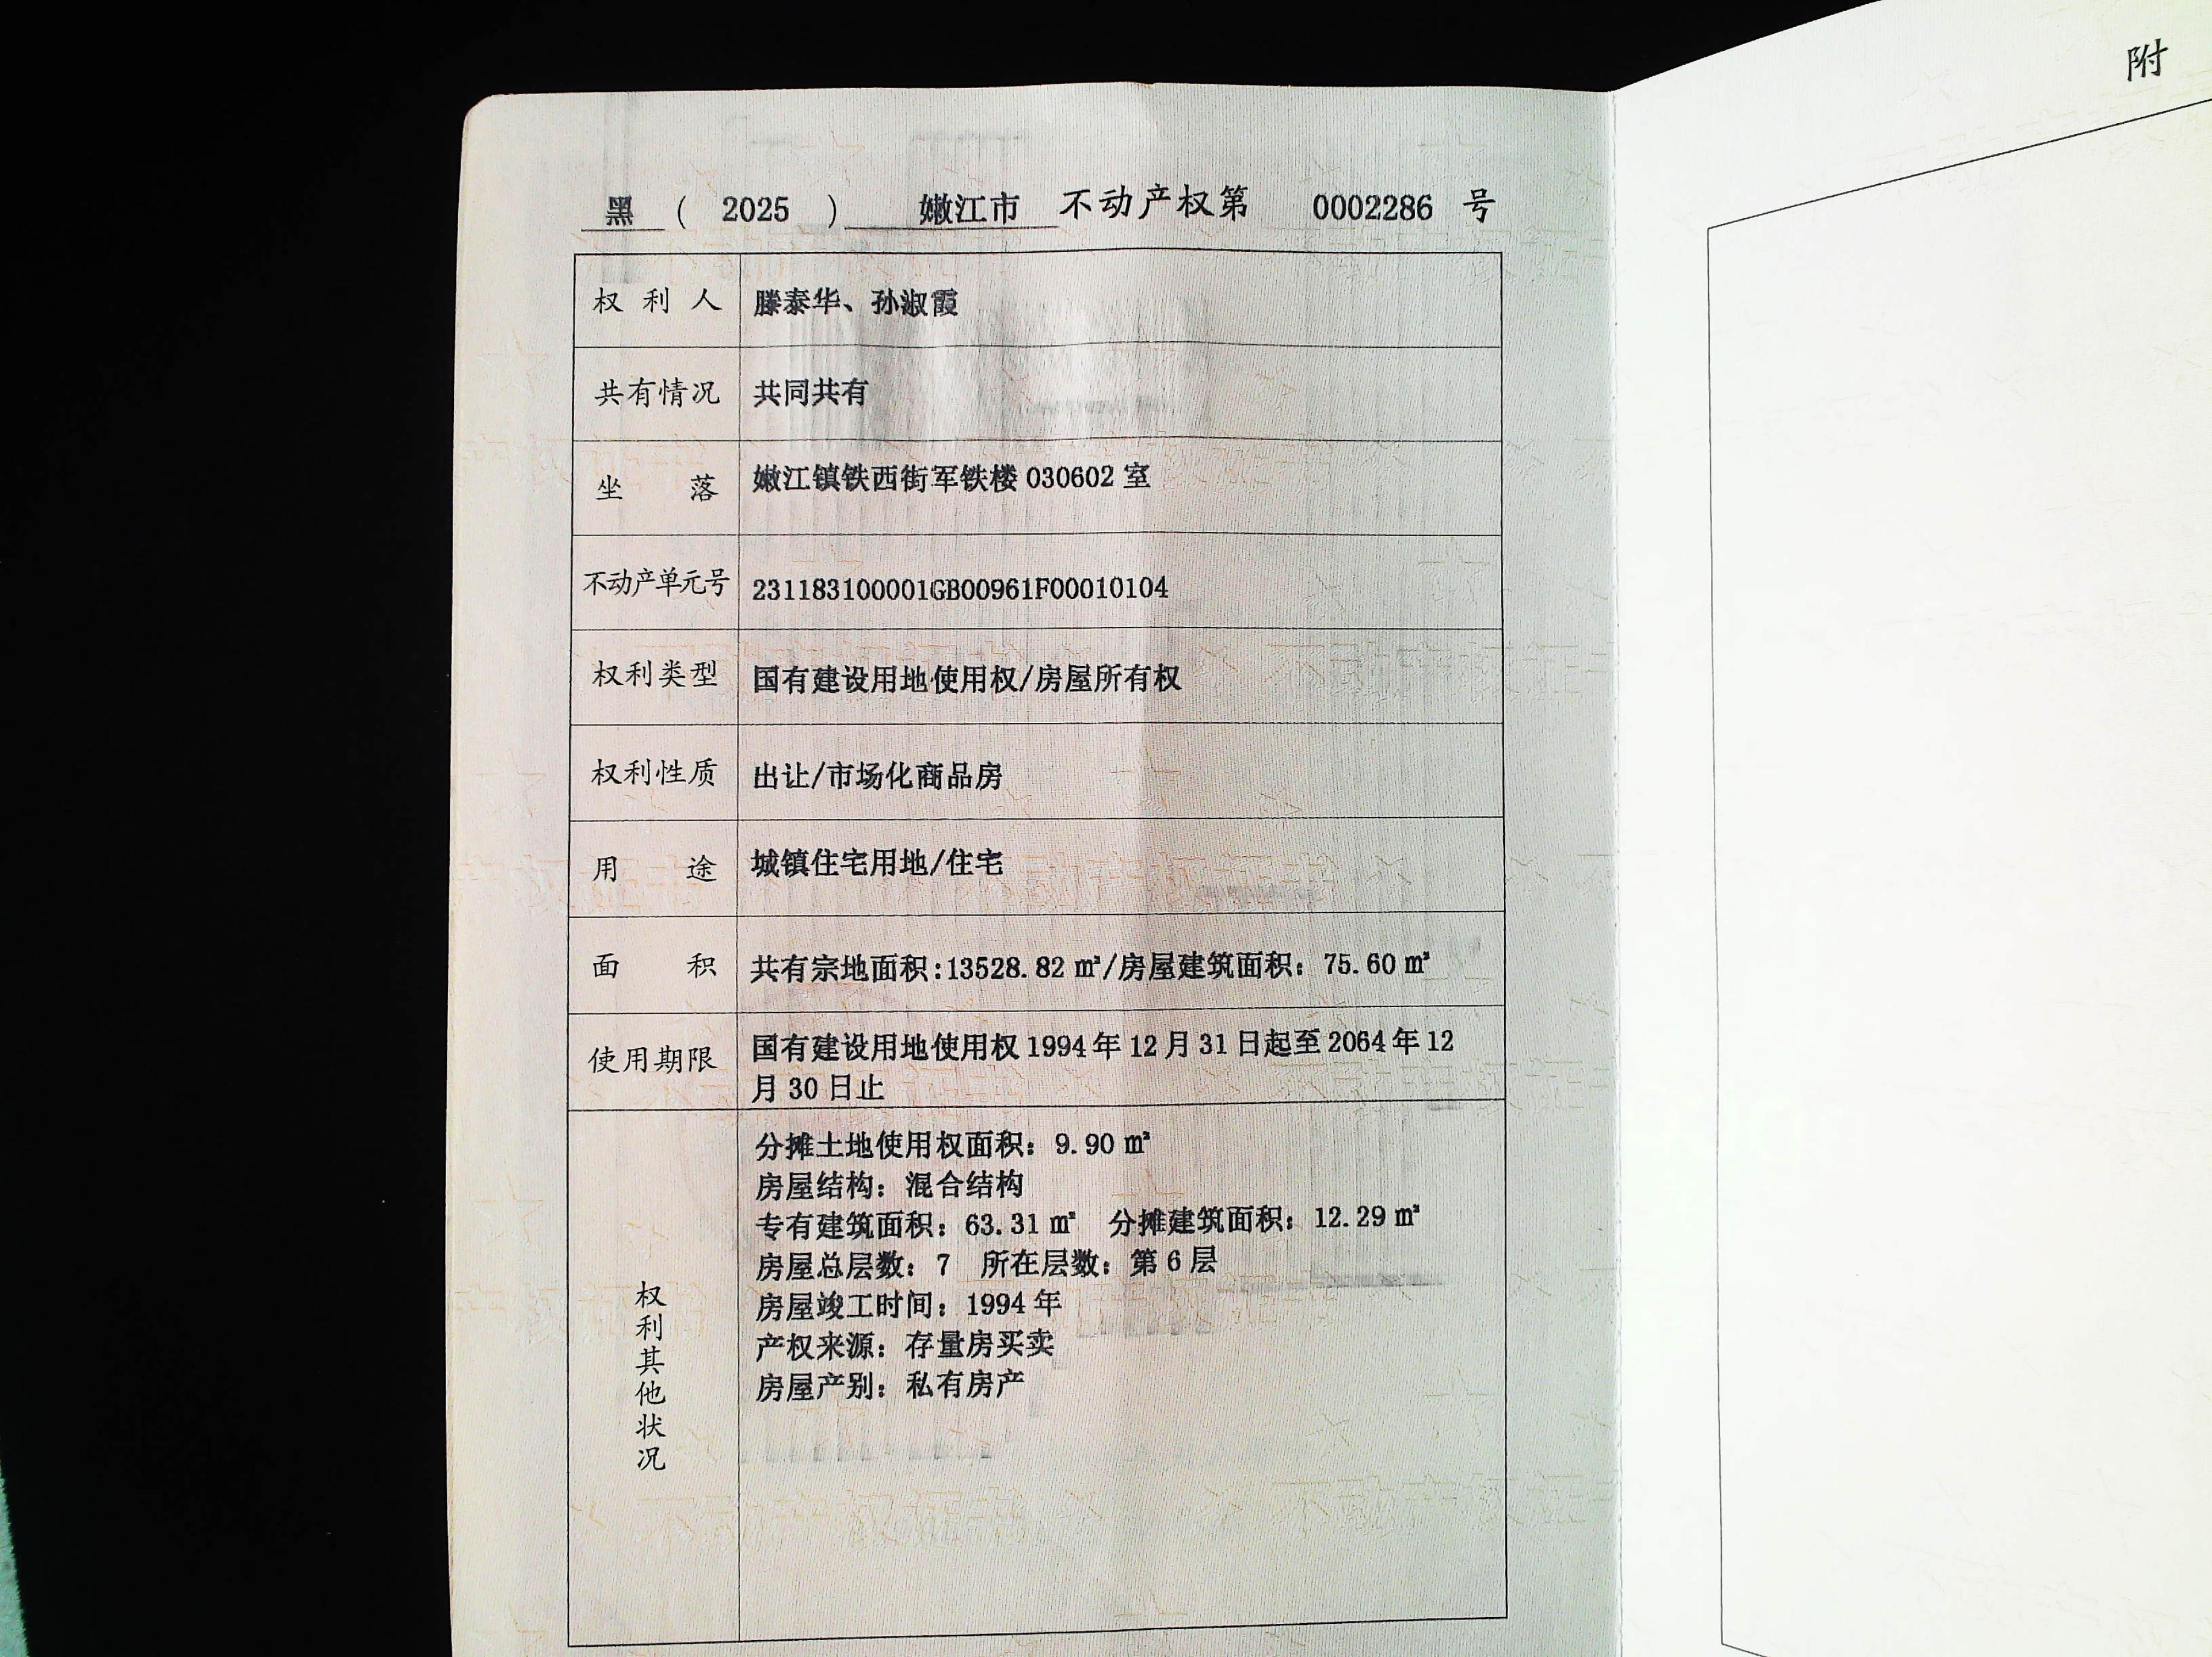 黑 ( 2025 ) 嫩江市 不动产权第 0002286 号
附
权利人 滕泰华、孙淑霞
共有情况 共同共有
坐落 嫩江镇铁西街军铁楼 030602 室
不动产单元号 231183100001GB00961F00010104
权利类型 国有建设用地使用权/房屋所有权
权利性质 出让/市场化商品房
用途 城镇住宅用地/住宅
面积 共有宗地面积:13528.82 ㎡/房屋建筑面积：75.60 ㎡
使用期限 国有建设用地使用权 1994 年 12 月 31 日起至 2064 年 12
月 30 日止
权利其他状况
分摊土地使用权面积：9.90 ㎡
房屋结构：混合结构
专有建筑面积：63.31 ㎡ 分摊建筑面积：12.29 ㎡
房屋总层数：7 所在层数：第 6 层
房屋竣工时间：1994 年
产权来源：存量房买卖
房屋产别：私有房产